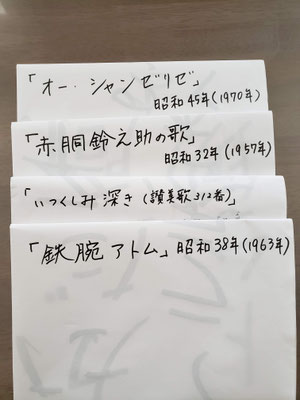 「オー・シャンゼリゼ」
昭和45年(1970年)
「赤胴鈴之助の歌」
昭和32年(1957年)
「いつくしみ深き(讃美歌312番)」
「鉄腕アトム」昭和38年(1963年)